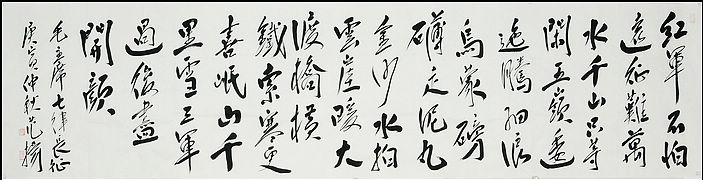 紅軍不怕
遠征難萬
水千山只等
閑五嶺逶
迤騰細浪
烏蒙磅
礴走泥丸
金沙水拍
雲崖暖大
渡橋橫
鐵索寒更
喜岷山千
里雪三軍
過後盡
開顏
毛主席七律長征
庚寅仲秋